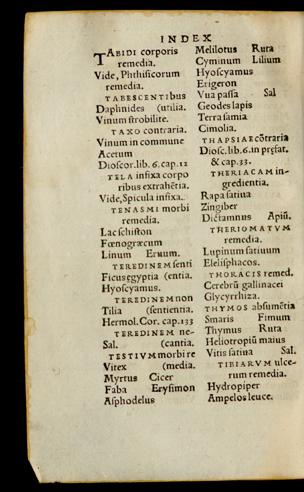 INDEX
TABIDI corporis
remedia.
Vide, Phthisicorum
remedia.
TABESCENTIbus
Daphnides (utilia.
Vinum strobilite.
TAXO contraria.
Vinum in commune
Acetum
Dioscor. lib. 6. cap. 12
TELA infixa corpo
ribus extrahẽtia.
Vide, Spicula infixa.
TENASMI morbi
remedia.
Lac schiston
Fœnogræcum
Linum Eruum.
TEREDINEM senti
Ficus ęgyptia (entia.
Hyoscyamus.
TEREDINEM non
Tilia (sentientia.
Hermol. Cor. cap. 133
TEREDINEM ne-
Sal. (cantia.
TESTIVM morbi re
Vitex (media.
Myrtus Cicer
Faba Erysimon
Asphodelus
Melilotus Ruta
Cyminum Lilium
Hyoscyamus
Erigeron
Vua passa Sal
Geodes lapis
Terra samia
Cimolia.
THAPSIAE cõtraria
Diosc. lib. 6. in pręfat.
& cap. 33.
THERIACAM in-
gredientia.
Rapa satiua
Zingiber
Dictamnus Apiũ.
THERIOMATVM
remedia.
Lupinum satiuum
Elelisphacos.
THORACIS remed.
Cerebrũ gallinacei
Glycyrrhiza.
THYMOS absumẽtia
Smaris Fimum
Thymus Ruta
Heliotropiũ maius
Vitis satiua Sal.
TIBIARVM ulce-
rum remedia.
Hydropiper
Ampelos leuce.